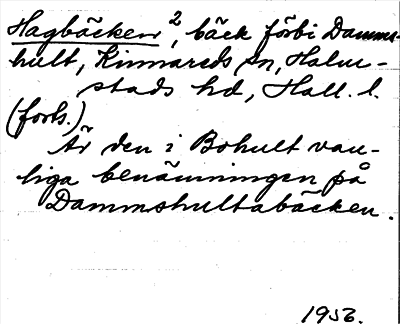 Hagbäcken², bäck förbi Damms-
hult, Kinnareds sn, Halm-
stads hd, Hall. l.
(forts.)
Är den i Bohult van-
liga benämningen på
Dammshultabäcken.
1956.